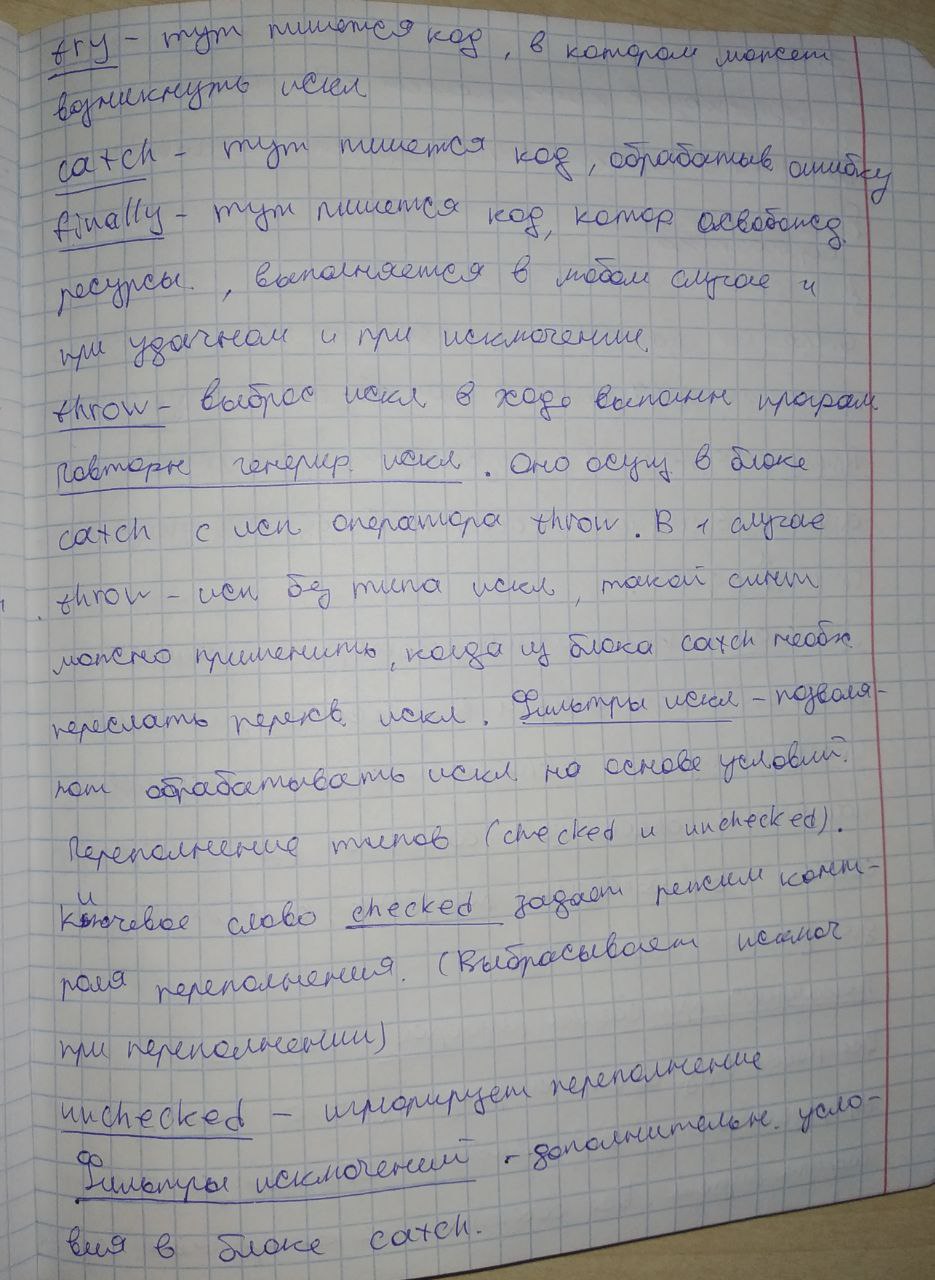 try - тут пишется код, в котором может
возникнуть искл
catch - тут пишется код, обрабатыв ошибку
finally - тут пишется код, котор освобожд.
ресурсы, выполняется в любом случае и
при удачном и при исключении.
throw - выброс искл в ходе выполнн програм
Повторн генерир. искл. Оно осущ в блоке
catch с исп оператора throw. В 1 случае
throw - исп без типа искл, такой синт
можно применить, когда из блока catch необх
переслать перехв. искл. Фильтры искл - позволя-
ют обрабатывать искл на основе условий.
Переполнение типов (checked и unchecked).
Ключевое слово checked задает режим конт-
роля переполнения. (Выбрасывает исключ
при переполнении)
unchecked - игнорирует переполнение
Фильтры исключений - дополнительн. усло-
вия в блоке catch.